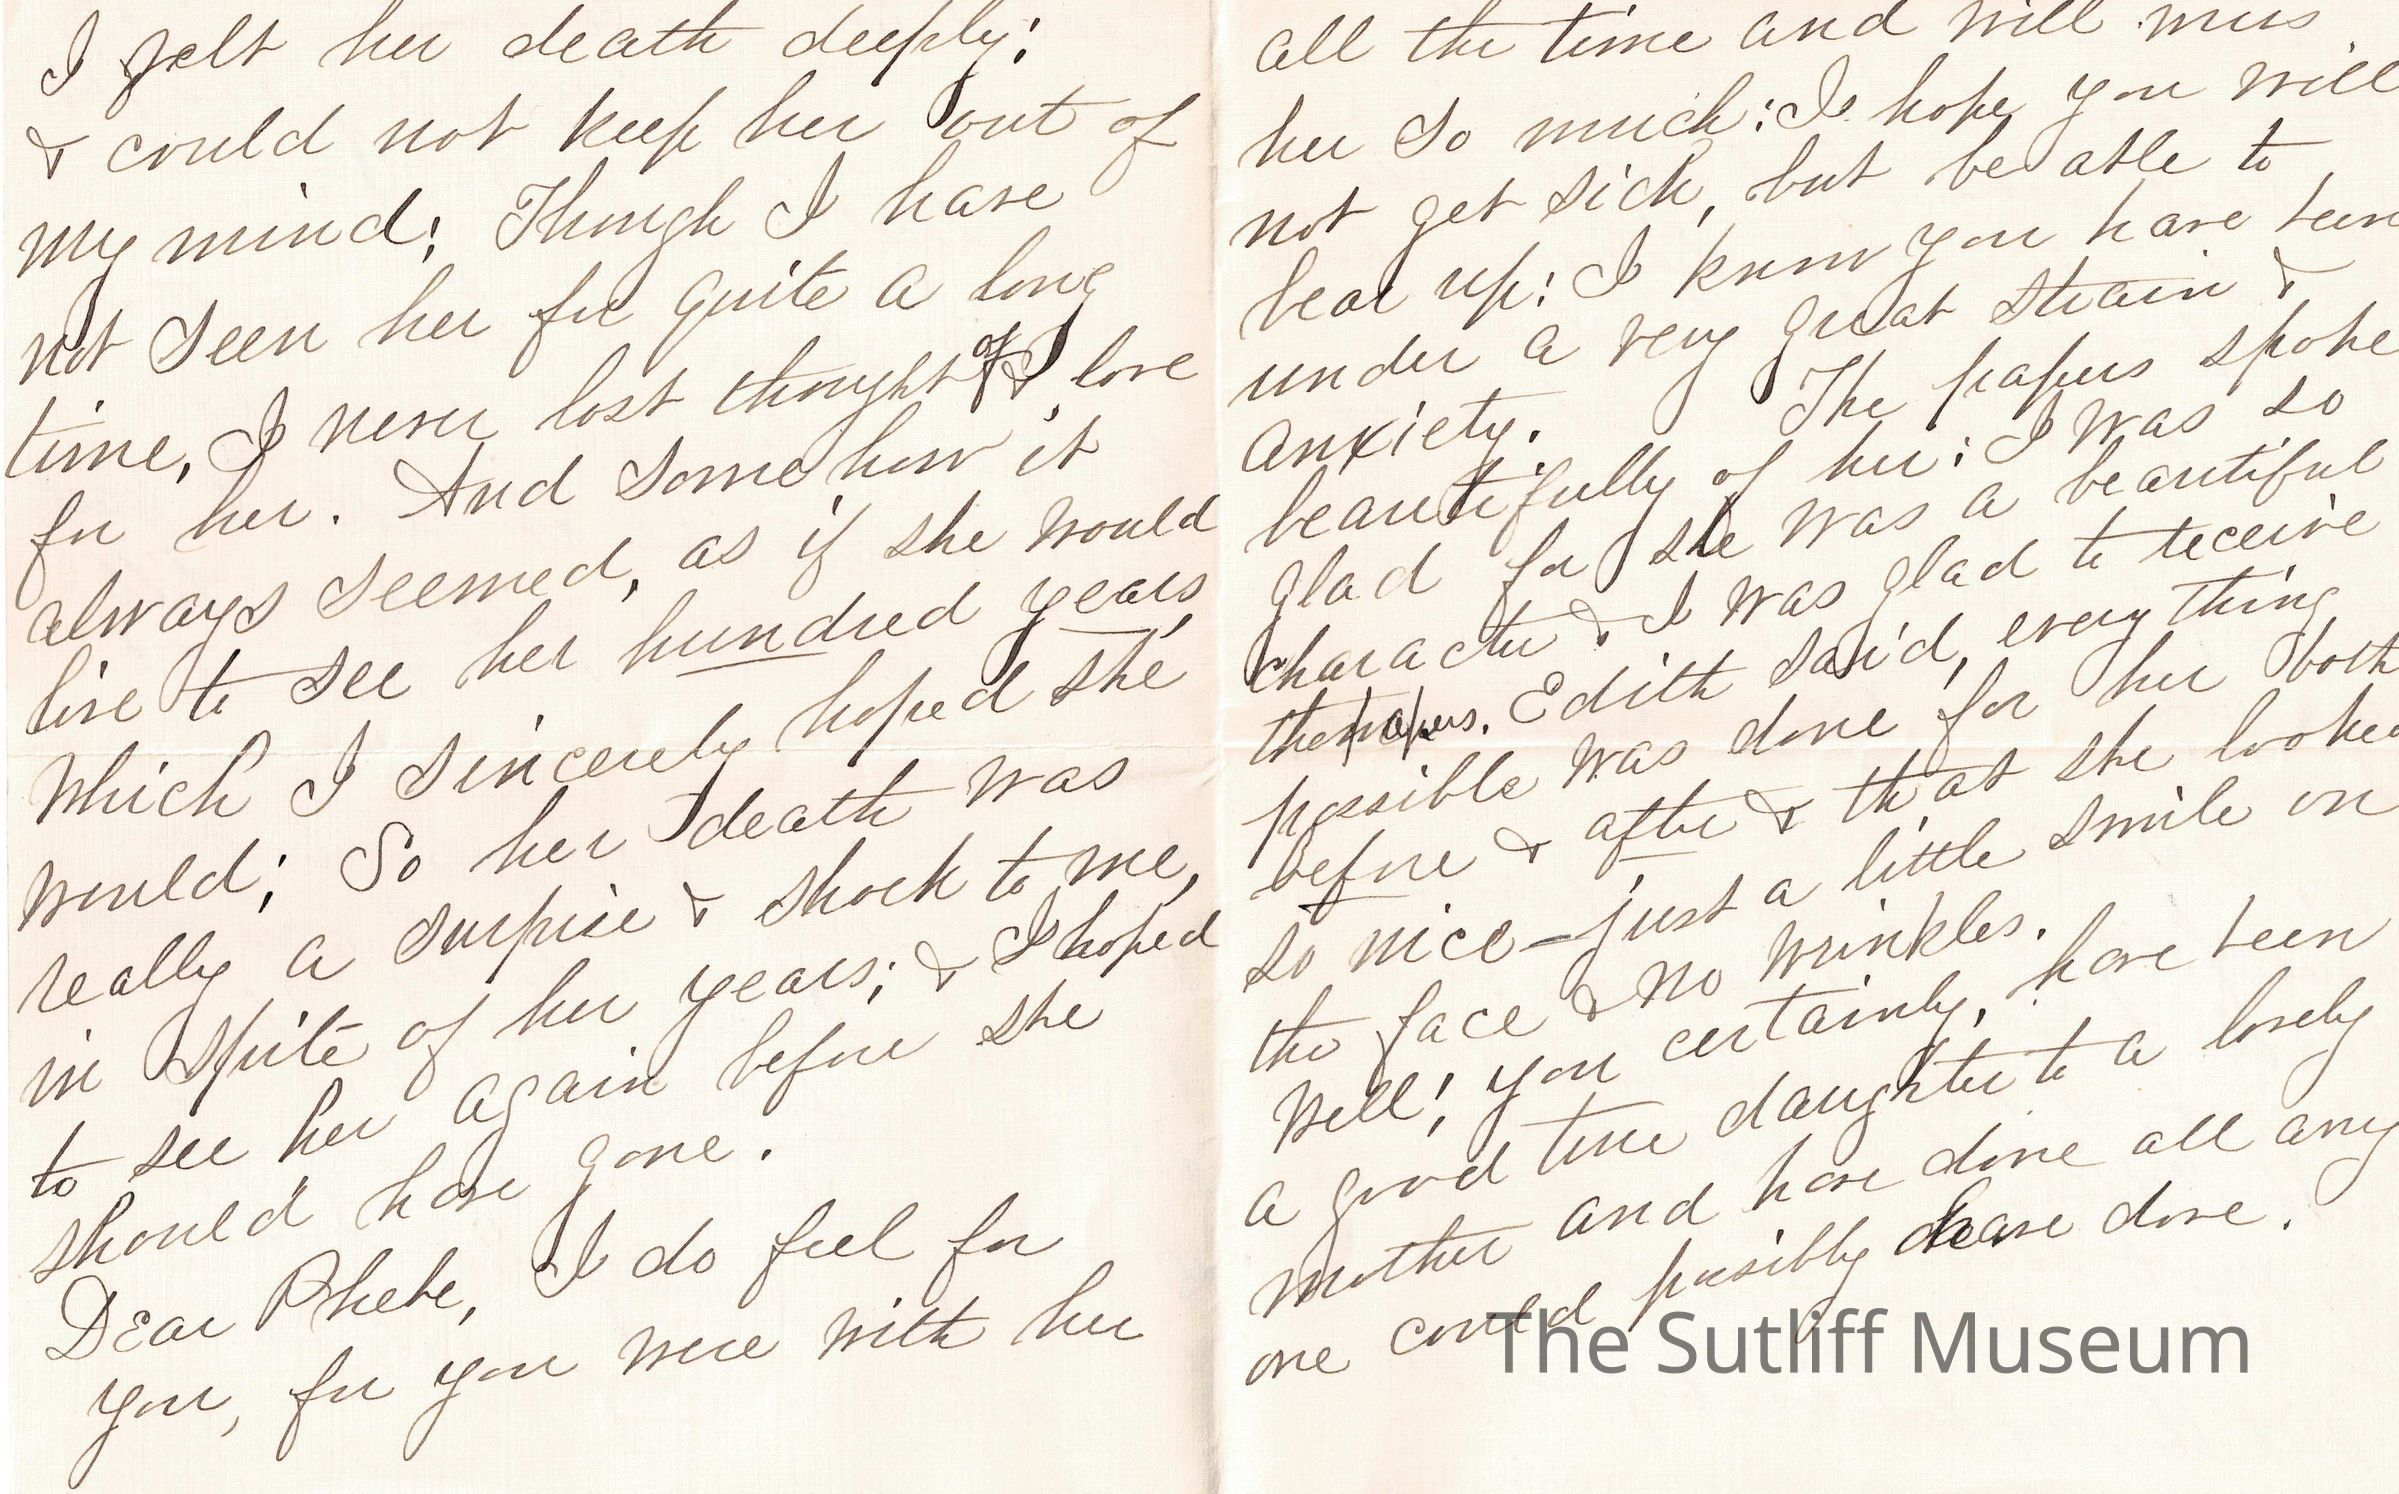 I felt her death deeply;
& could not keep her out of
my mind; Though I have
not seen her for quite a long
time, I never lost thought of & love
for her. And some how it
always seemed, as if she would
live to see her hundred years,
which I sincerely hoped she
would; So her death was
really a surprise & shock to me,
in spite of her years; & I hoped
to see her again before she
should have gone.
Dear Phebe, I do feel for
you, for you were with her
all the time and will miss
her so much; I hope you will
not get sick, but be able to
bear up; I know you have been
under a very great strain &
anxiety. The papers spoke
beautifully of her; I was so
glad for she was a beautiful
character & I was glad to receive
the papers. Edith said, every thing
possible was done for her both
before & after & that she looked
so nice - just a little smile on
the face & no wrinkles.
Well! you certainly, have been
a good true daughter to a lovely
mother and have done all any
one could possibly have done.
The Sutliff Museum